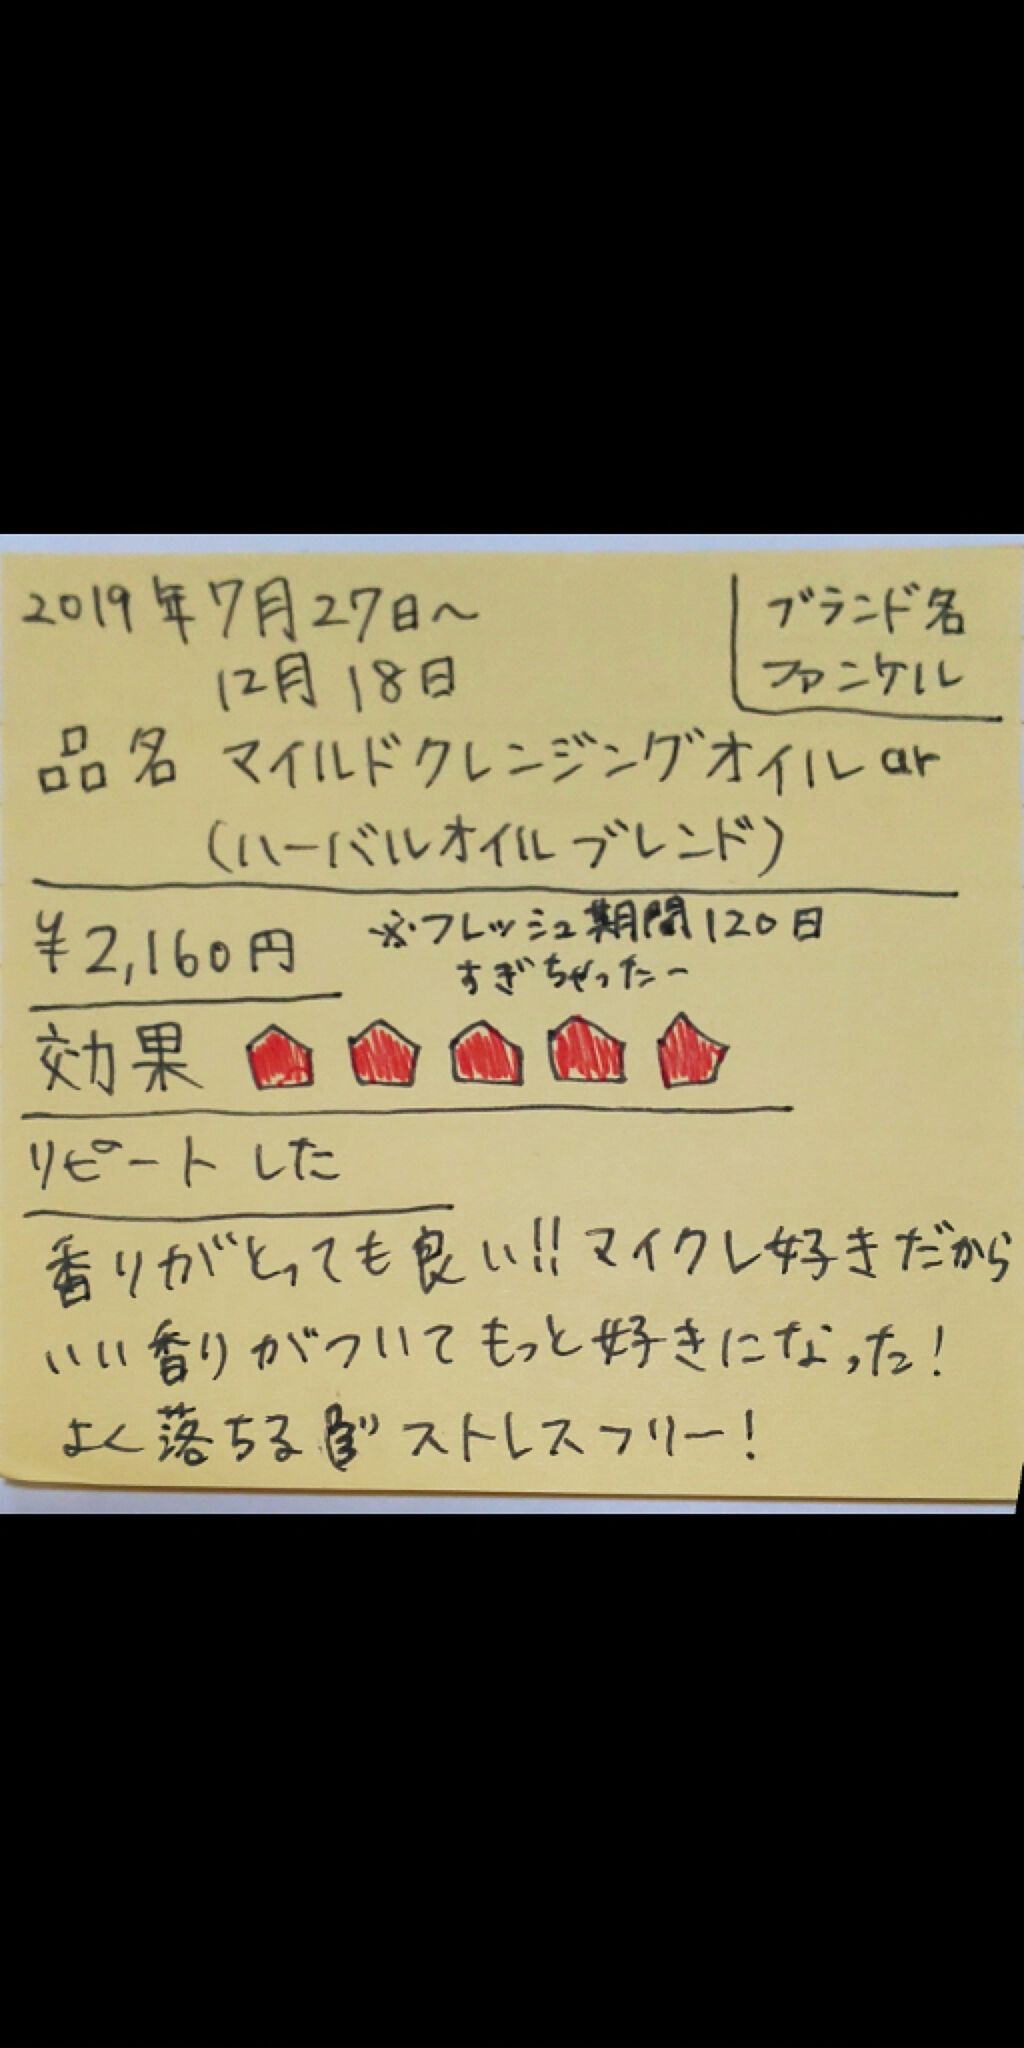 2019年7月27日～
12月18日
ブランド名
ファンケル
品名 マイルドクレンジングオイルar
(ハーバルオイルブレンド)
¥2,160円
※フレッシュ期間120日
すぎちゃったー
効果
リピートした
香りがとっても良い!!マイクレ好きだから
いい香りがついてもっと好きになった!
よく落ちる ストレスフリー!